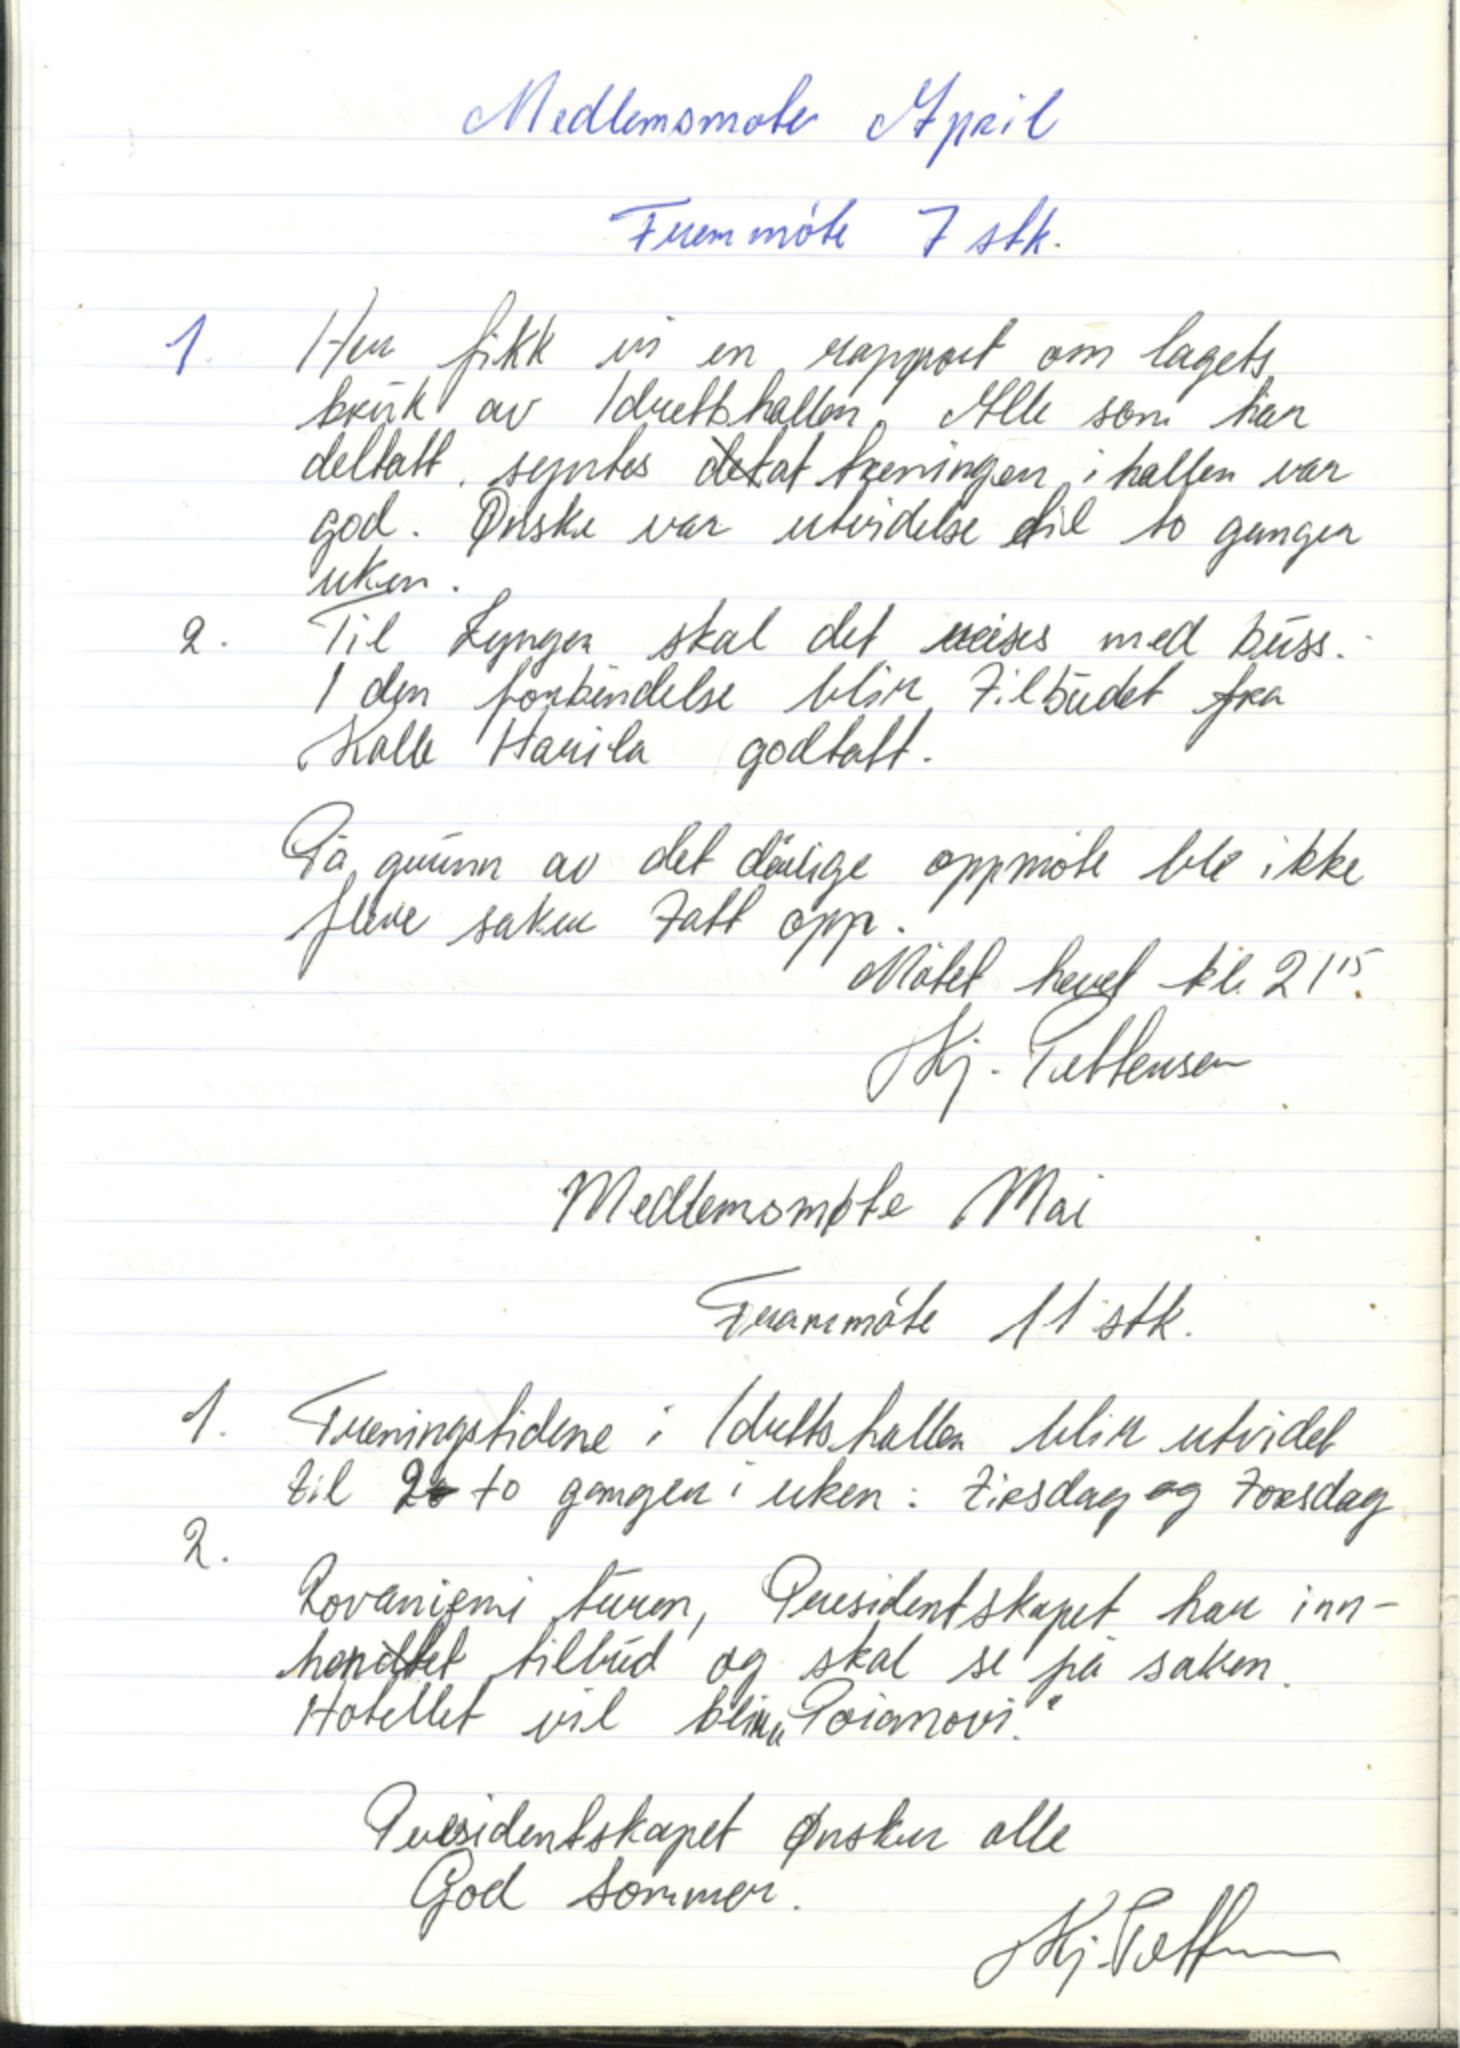 Medlemsmøte April
Fremmóte 7 stk.
1. Her fikk vi en rapport om lagets
bruk av Idrettshallen. Alle som har
deltatt, syntes at treningen i hallen var
god. Ønske var utvidelse til to ganger
uken.
2. Til Lyngen skal det reises med buss.
I den forbindelse blir tilbudet fra
Kalle Harila godtatt.
På grunn av det dårlige oppmóte ble ikke
flere saker tatt opp.
Mótet hevet kl. 21 15.
Kj. Pettersen
Medlemsmøte Mai
Frammóte 11 stk.
1. Treningstidene i Idrettshallen blir utvidet
til to ganger i uken: tirsdag og torsdag
2.
Rovaniemi turen, Presidentskapet har inn-
hentet tilbud og skal se på saken.
Hotellet vil bli "Poianovi."
Presidentskapet Ønsker alle
God sommer.
Kj. Pettersen